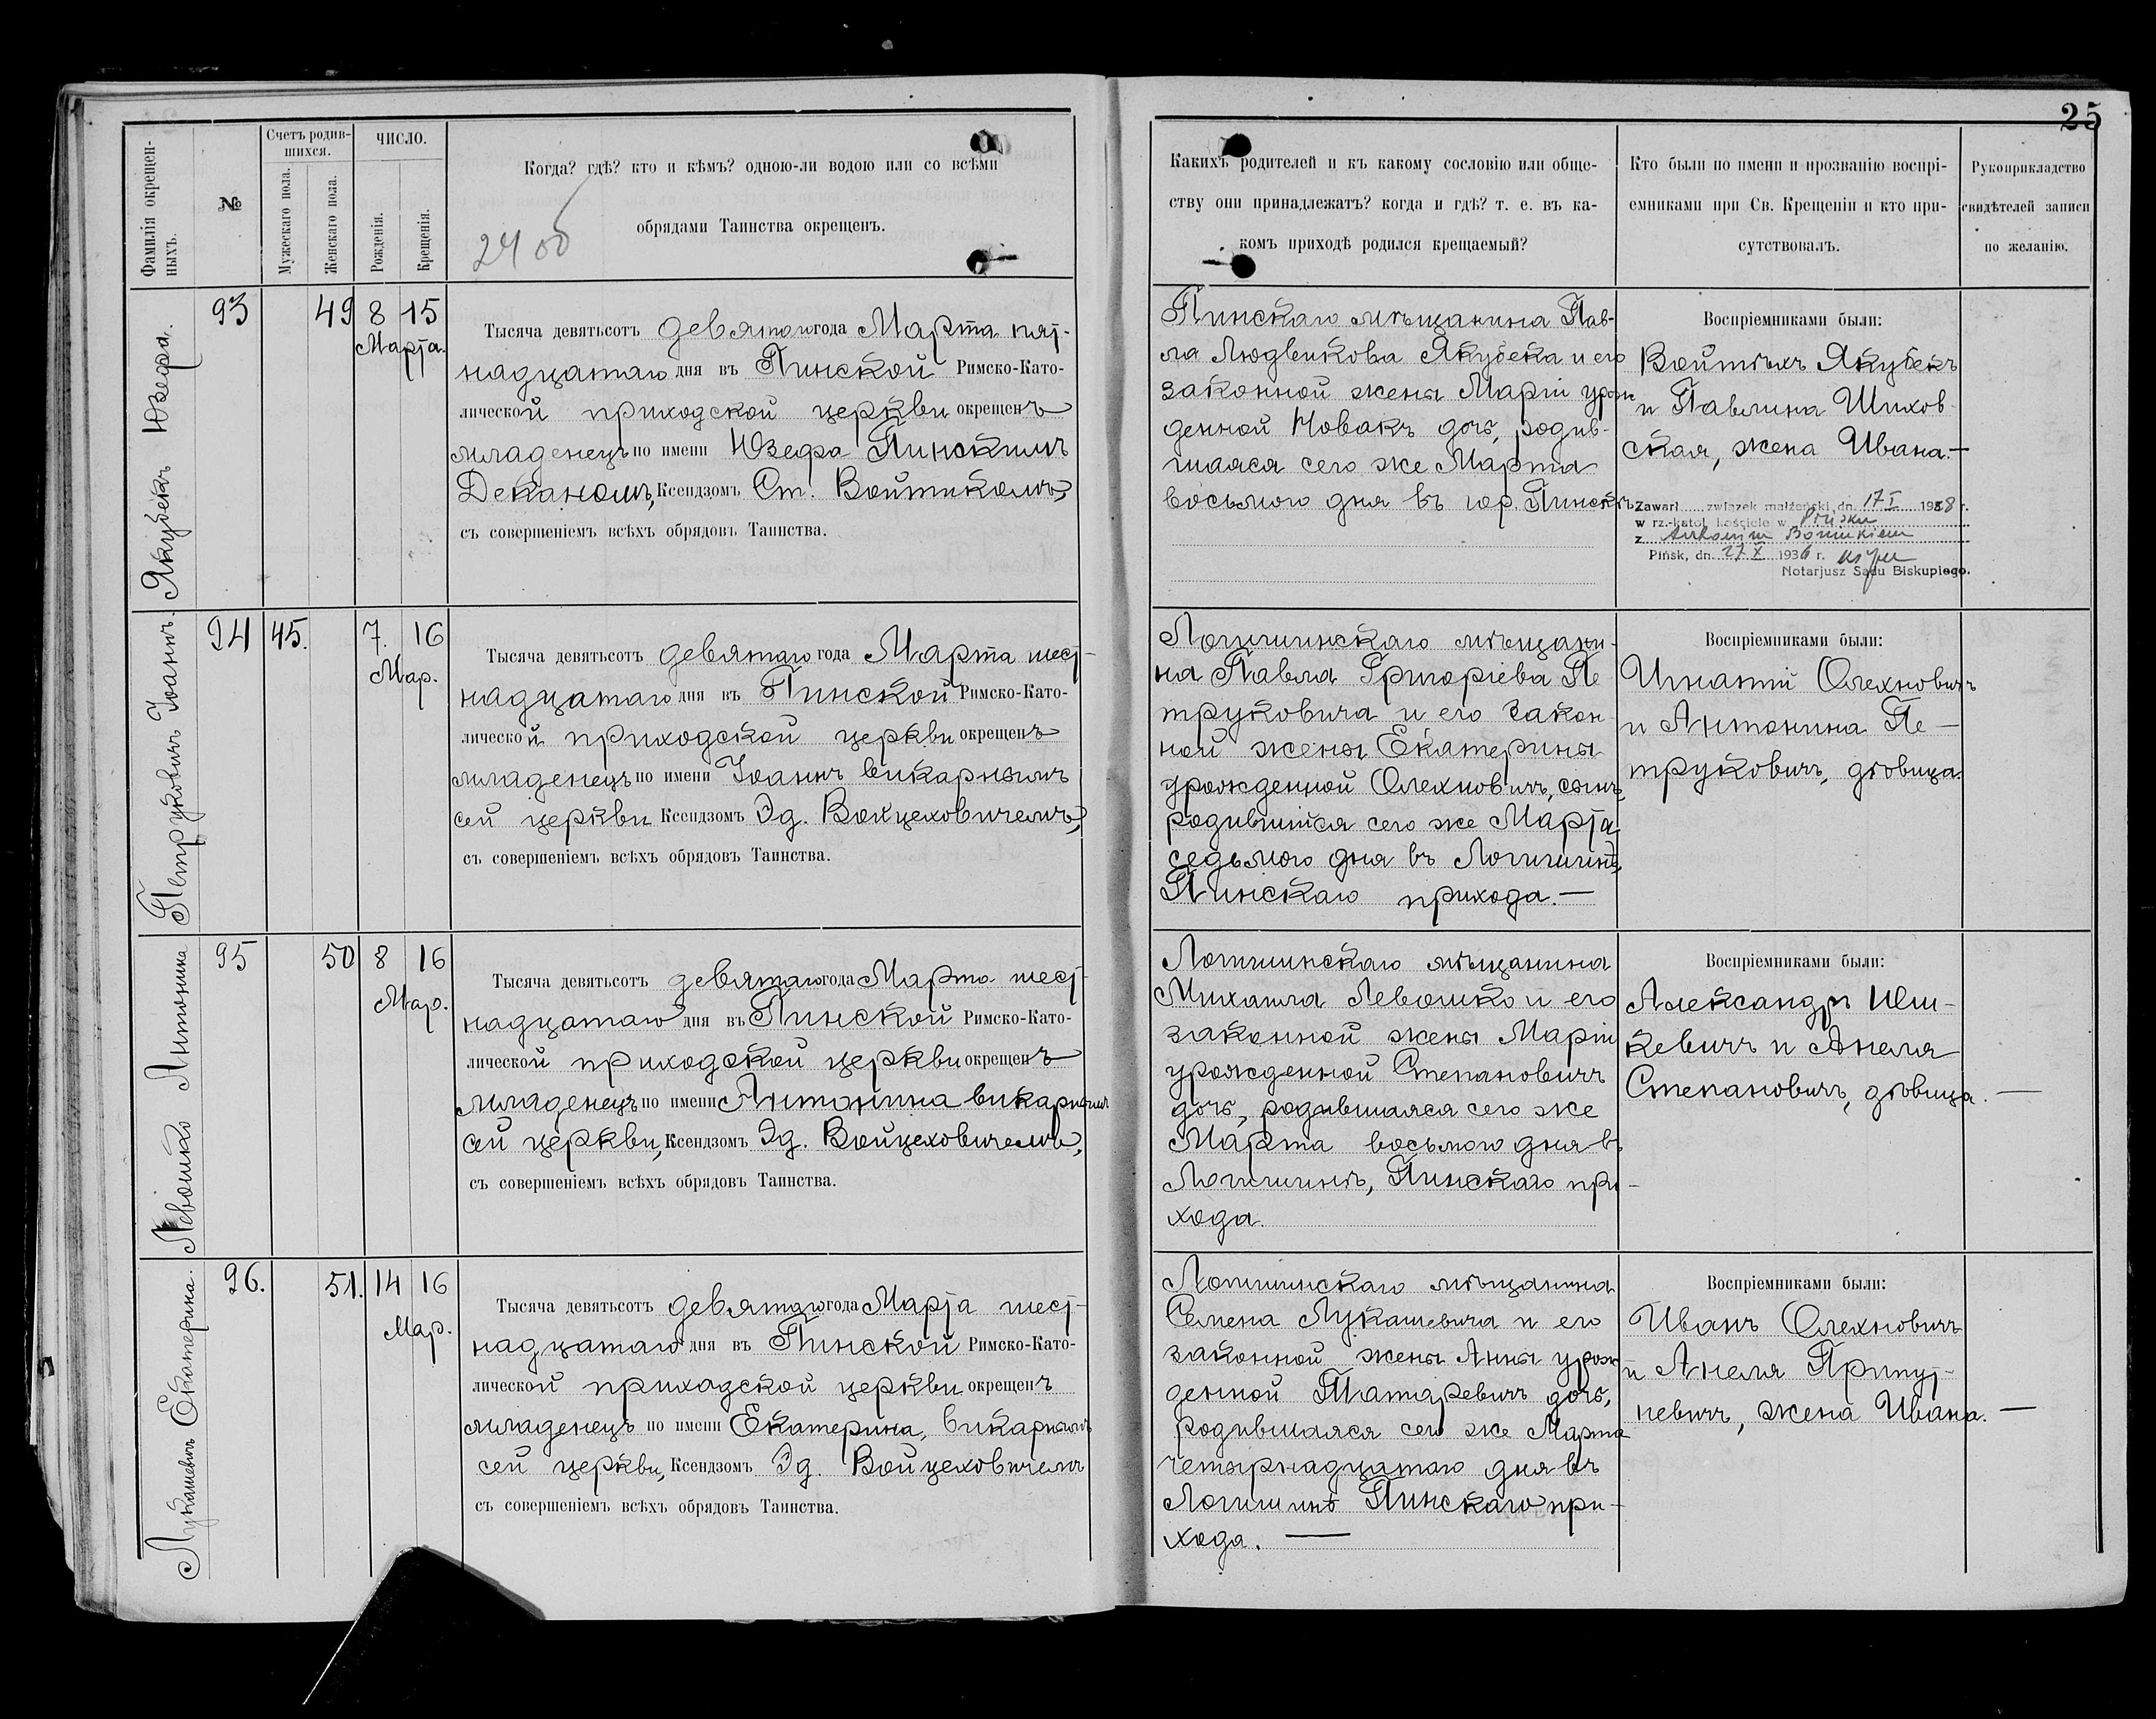 25
Фамилія окрещен-
ныхъ.
№
Счетъ родив-
шихся.
Мужескаго пола.
Женскаго пола.
ЧИСЛО.
Рожденія.
Крещенія.
Когда? гдѣ? кто и кѣмъ? одною-ли водою или со всѣми
обрядами Таинства окрещенъ.
2400
Какихъ родителей и къ какому сословію или обще-
ству они принадлежатъ? когда и гдѣ? т. е. въ ка-
комъ приходѣ родился крещаемый?
Кто были по имени и прозванію воспрі-
емниками при Св. Крещеніи и кто при-
сутствовалъ.
Рукоприкладство
свидѣтелей записи
по желанію.
Якубекъ Юзефа.
93 49 8 15
Марта.
Тысяча девятьсотъ девятаго года Марта пят-
надцатаго дня въ Пинской Римско-Като-
лической приходской церкви окрещенъ
младенецъ по имени Юзефа Пинскимъ
Деканомъ, Ксендзомъ Ст. Войтикомъ,
съ совершеніемъ всѣхъ обрядовъ Таинства.
Пинскаго мѣщанина Пав-
ла Людвикова Якубека и его
законной жены Маріи урож
денной Новакъ дочь, родив-
шаяся сего же Марта
восьмого дня въ гор. Пинскѣ
Воспріемниками были:
Войтѣхъ Якубекъ
и Павлина Шихов-
ская, жена Ивана.—
Zawarł związek małżeński dn. 17 I 1928 r.
w rz.-katol. kościele w Pińsku
z Antonim
Pińsk, dn. 27 X 1936 r.
Notarjusz Sądu Biskupiego.
Петруковичъ Іоаннъ.
94 45. 7. 16
Мар.
Тысяча девятьсотъ девятаго года Марта шест-
надцатаго дня въ Пинской Римско-Като-
лической приходской церкви окрещенъ
младенецъ по имени Іоаннъ викарнымъ
сей церкви Ксендзомъ Эд. Войцеховичемъ,
съ совершеніемъ всѣхъ обрядовъ Таинства.
Логишинскаго мѣщани-
на Павла Григоріева Пе
труковича и его закон-
ной жены Екатерины
урожденной Олехновичъ, сынъ,
родившійся сего же Марта
седьмого дня въ Логишинѣ,
Пинскаго прихода.—
Воспріемниками были:
Игнатій Олехновичъ
и Антонина Пе—
труковичъ, дѣвица.
Левошко Антонина
95 50 8 16
Мар.
Тысяча девятьсотъ девятаго года Марта шест-
надцатаго дня въ Пинской Римско-Като-
лической приходской церкви окрещенъ
младенецъ по имени Антонина викарнымъ
сей церкви, Ксендзомъ Эд. Войцеховичемъ,
съ совершеніемъ всѣхъ обрядовъ Таинства.
Логишинскаго мѣщанина
Михаила Левошко и его
законной жены Маріи
урожденной Степановичъ
дочь, родившаяся сего же
Марта восьмого дня въ
Логишинѣ, Пинскаго при-
хода.
Воспріемниками были:
Александръ Юш-
кевичъ и Анеля
Степановичъ, дѣвица. —
Лукашевичъ Екатерина.
96. 51. 14 16
Мар.
Тысяча девятьсотъ девятаго года Марта шест-
надцатаго дня въ Пинской Римско-Като-
лической приходской церкви окрещенъ
младенецъ по имени Екатерина, викарнымъ
сей церкви, Ксендзомъ Эд. Войцеховичемъ
съ совершеніемъ всѣхъ обрядовъ Таинства.
Логишинскаго мѣщанина
Семена Лукашевича и его
законной жены Анны урож
денной Татаревичъ дочь,
родившаяся сего же Марта
четырнадцатаго дня въ
Логишинѣ Пинскаго при-
хода. —
Воспріемниками были:
Иванъ Олехновичъ
и Анеля Приту-
певичъ, жена Ивана. —